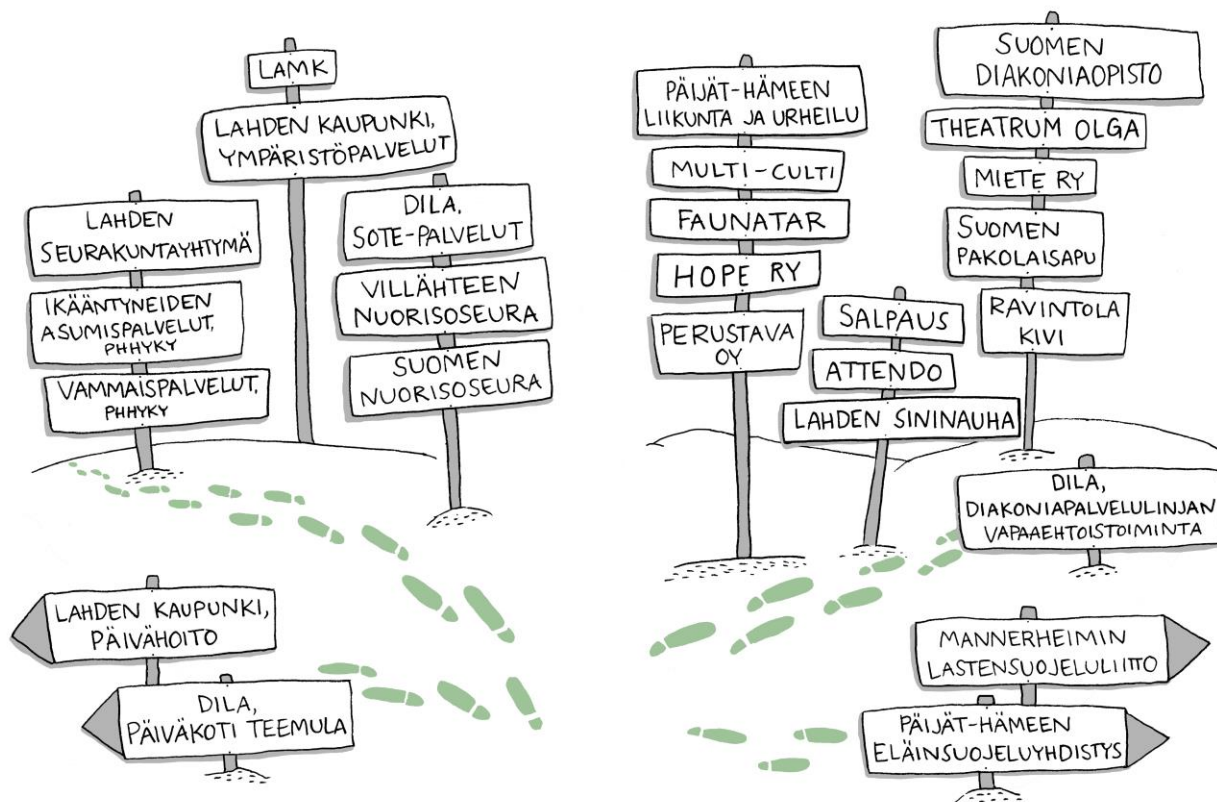 LAMK
LAHDEN KAUPUNKI,
YMPÄRISTÖPALVELUT
LAHDEN
SEURAKUNTAYHTYMÄ
IKÄÄNTYNEIDEN
ASUMISPALVELUT,
PHHYKY
VAMMAISPALVELUT,
PHHYKY
DILA,
SOTE-PALVELUT
VILLÄHTEEN
NUORISOSEURA
SUOMEN
NUORISOSEURA
LAHDEN KAUPUNKI,
PÄIVÄHOITO
DILA,
PÄIVÄKOTI TEEMULA
PÄIJÄT-HÄMEEN
LIIKUNTA JA URHEILU
MULTI-CULTI
FAUNATAR
HOPE RY
PERUSTAVA
OY
SALPAUS
ATTENDO
LAHDEN SININAUHA
SUOMEN
DIAKONIAOPISTO
THEATRUM OLGA
MIETE RY
SUOMEN
PAKOLAISAPU
RAVINTOLA
KIVI
DILA,
DIAKONIAPALVELULINJAN
VAPAAEHTOISTOIMINTA
MANNERHEIMIN
LASTENSUOJELULIITTO
PÄIJÄT-HÄMEEN
ELÄINSUOJELUYHDISTYS